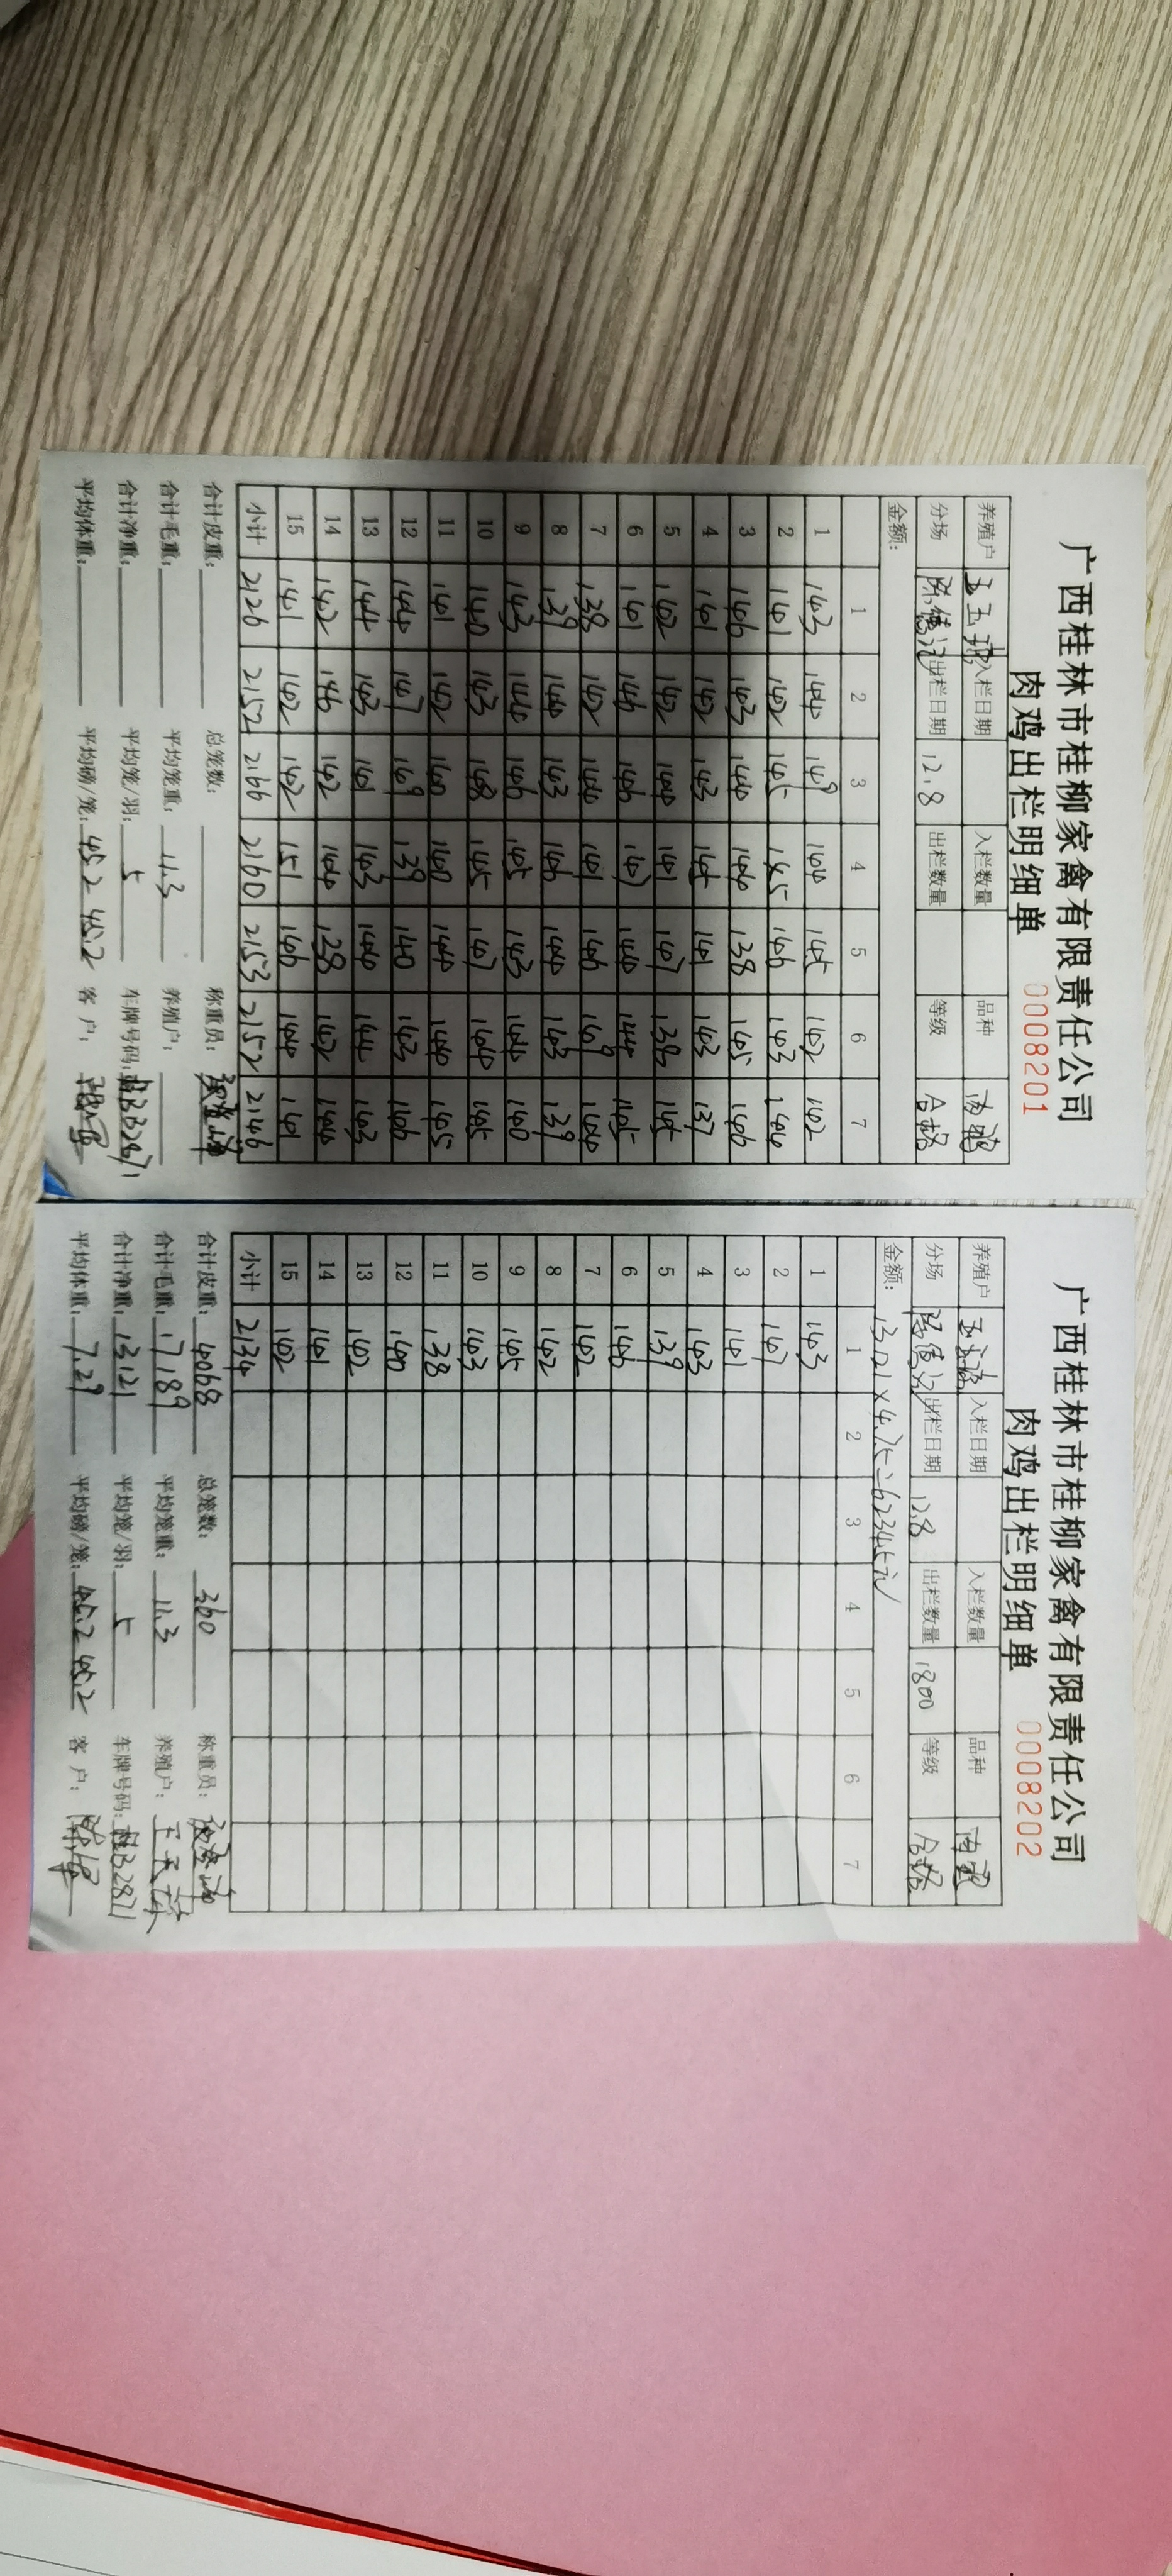 广西桂林市桂柳家禽有限责任公司
肉鸡出栏明细单 0008201
养殖户 入栏日期 入栏数量 品种 肉鸭
分场 出栏日期 12.8 出栏数量 等级 合格
金额:
1 2 3 4 5 6 7
1 143 144 149 144 145 142 142
2 141 142 145 145 146 143 144
3 146 143 144 144 138 145 146
4 141 142 143 145 141 143 137
5 142 142 144 141 147 138 145
6 141 146 146 147 144 144 145
7 138 142 144 141 146 149 144
8 139 144 143 146 144 143 139
9 143 144 146 145 143 144 140
10 140 143 148 145 147 144 145
11 141 142 140 140 144 144 145
12 144 147 149 139 140 143 146
13 144 143 141 143 144 144 143
14 142 146 142 144 138 142 144
15 141 142 142 151 146 144 141
小计 2126 2152 2166 2160 2153 2152 2146
合计皮重: 总笼数: 称重员:
合计毛重: 平均笼重: 11.3 养殖户:
合计净重: 平均笼/羽: 5 车牌号码:
平均体重: 平均磅/笼: 45.2 45.2 客户:
广西桂林市桂柳家禽有限责任公司
肉鸡出栏明细单 0008202
养殖户 入栏日期 入栏数量 品种 肉鸭
分场 出栏日期 12.8 出栏数量 1800 等级 合格
金额: 13121×4.75=62345元
1 2 3 4 5 6 7
1 143
2 147
3 141
4 143
5 139
6 146
7 142
8 142
9 145
10 143
11 138
12 140
13 142
14 141
15 142
小计 2134
合计皮重: 4068 总笼数: 360 称重员:
合计毛重: 17189 平均笼重: 11.3 养殖户:
合计净重: 13121 平均笼/羽: 5 车牌号码:
平均体重: 7.29 平均磅/笼: 45.2 45.2 客户: